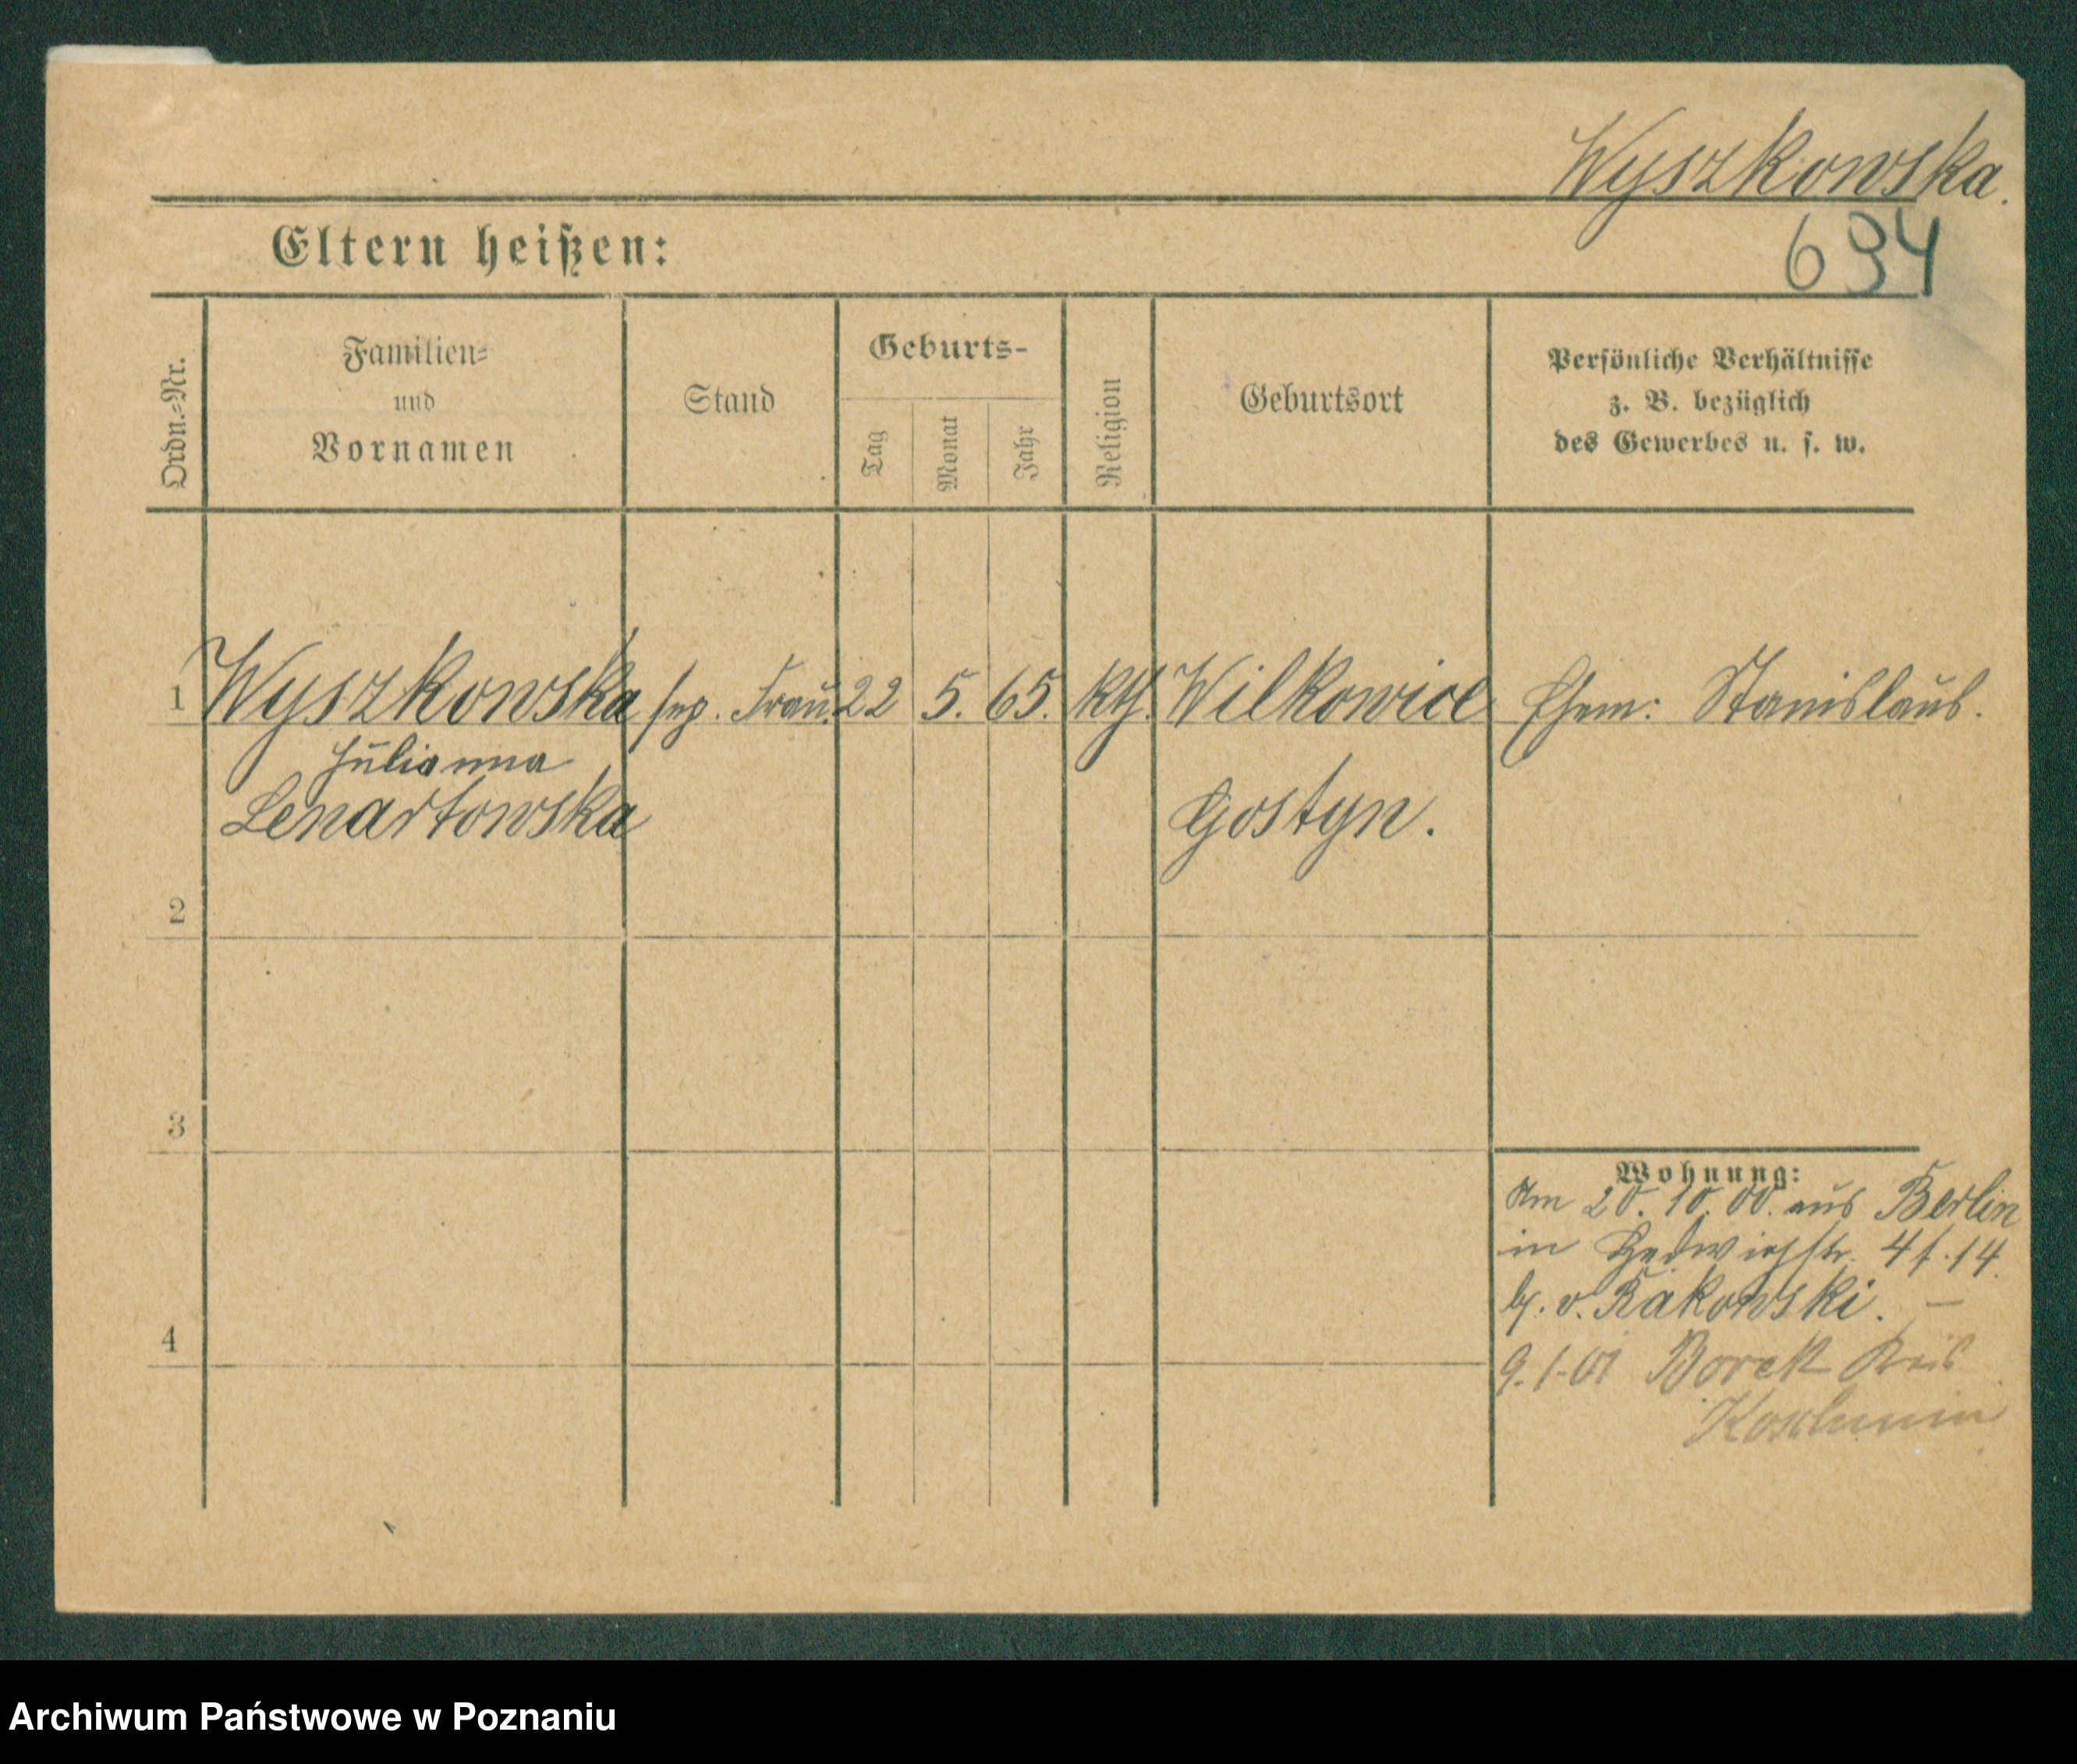 Wyszkowska.
694
Eltern heißen:
Ordn.-Nr.
Familien-
und
Vornamen
Stand
Geburts-
Tag
Monat
Jahr
Religion
Geburtsort
Persönliche Verhältnisse
z. B. bezüglich
des Gewerbes u. s. w.
1 Wyszkowska sep. Frau. 22 5. 65. kth. Wilkowice Ehem: Stanislaus.
Julianna
Lenartowska Gostyn.
2
3
Wohnung:
Am 20. 10. 00. aus Berlin
in Hedwigstr. 4 f. 14.
b. v. Rakowski. –
4
9.1.01 Borek Kreis
Koschmin
Archiwum Państwowe w Poznaniu